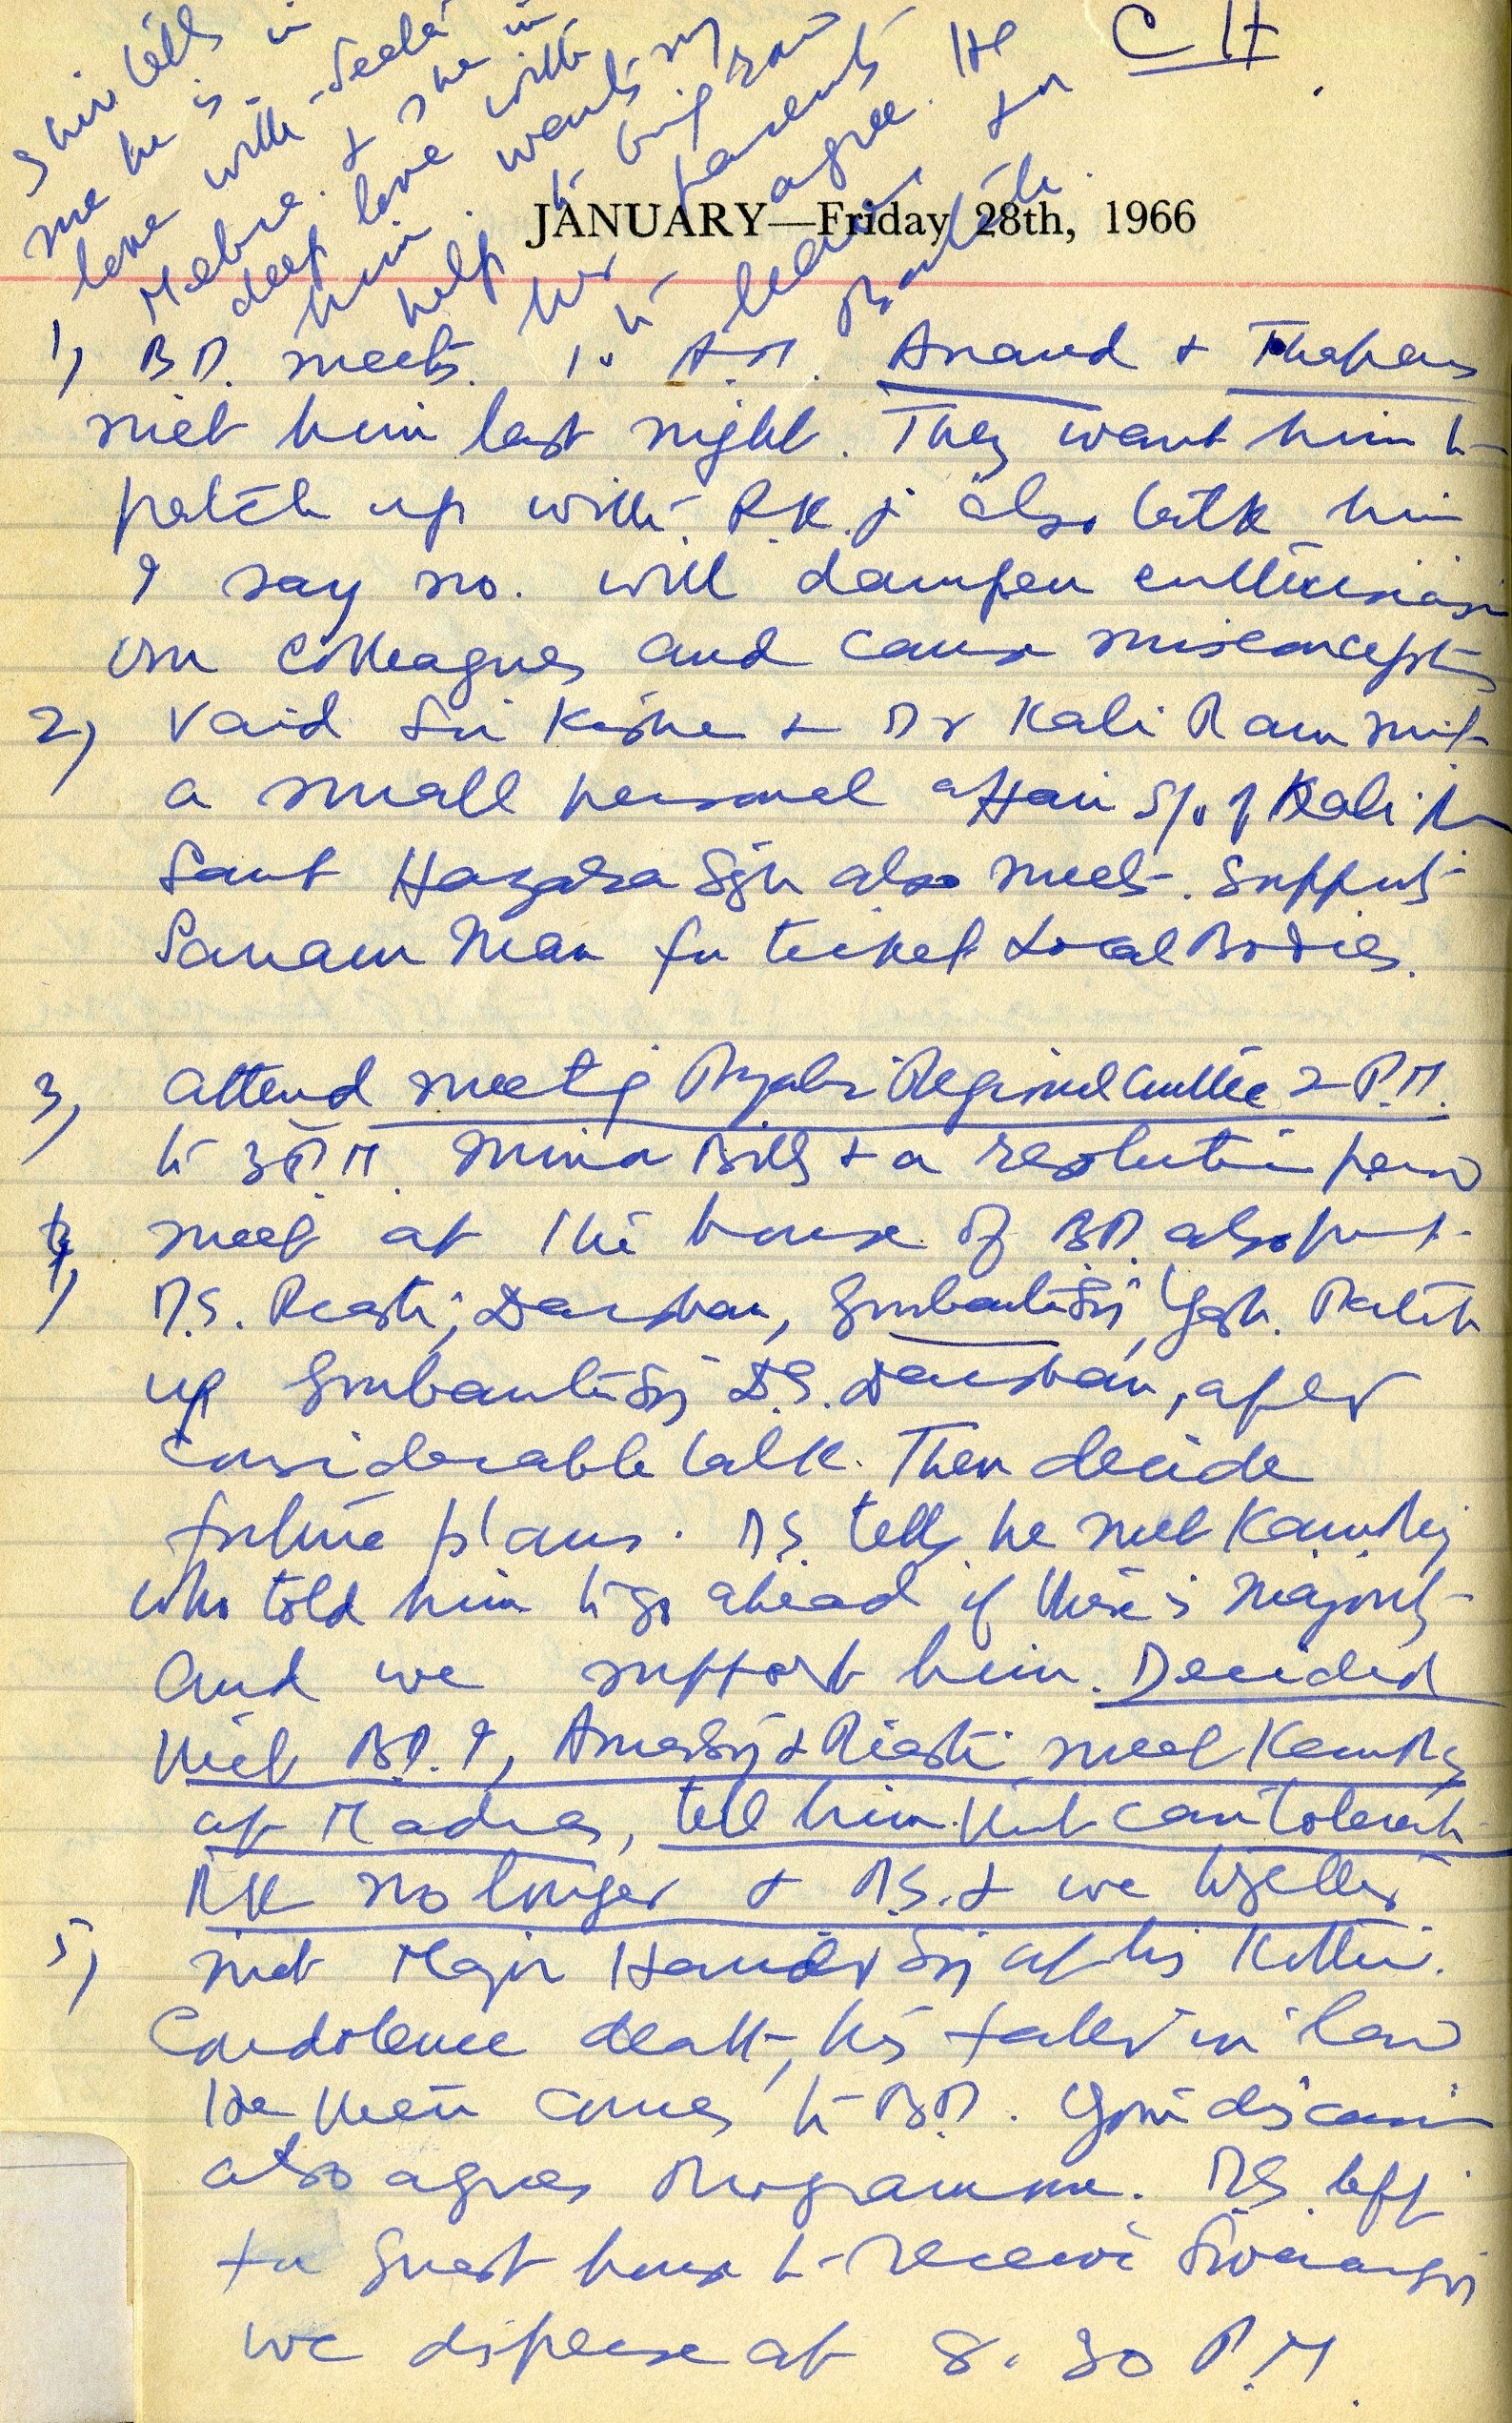 CH
Shiv tells
me he is in
love with Seela
Mehra. & she in
deep love with
him. wants my
help to bring round
her parents
to agree. He
leaves for
JANUARY—Friday 28th, 1966
1) B.D. meets. 10 A.M. Anand & Thapar
met him last night. They want him to
patch up with R.K. & also talk him
I say no. will dampen enthusiasm
our colleagues and cause misconception
2) Vaid Sri Kishe & Dr Kali Ram meet
a small personal affair S/o of Kali
Sant Hazara Sgh also meet. Support
Sanam Man for ticket Local Bodies.
3, attend meetg Regional Cmttee 2 P.M.
to 3 P.M. minor Bills & a resolution
4, meet at the house of B.D. also
D.S. Darshan, Gurbanta Sgj Yash. Patch
up Gurbanta Sgj D.S. Darshan, after
considerable talk. Then decide
future plans. DS. tells he met Kamraj
who told him to go ahead if there is majority
and we support him. Decided
that B.D. I, Amar Sgj & meet Kamraj
at Madras, tell him that can tolerate
RK no longer & DS. & we together
5) met Major Sgj at his Kothi.
Condolence death, his father in law
He then comes to B.D. Join discussion
also agrees Programme. DS. left
for Guest house to receive
we disperse at 8.30 P.M.